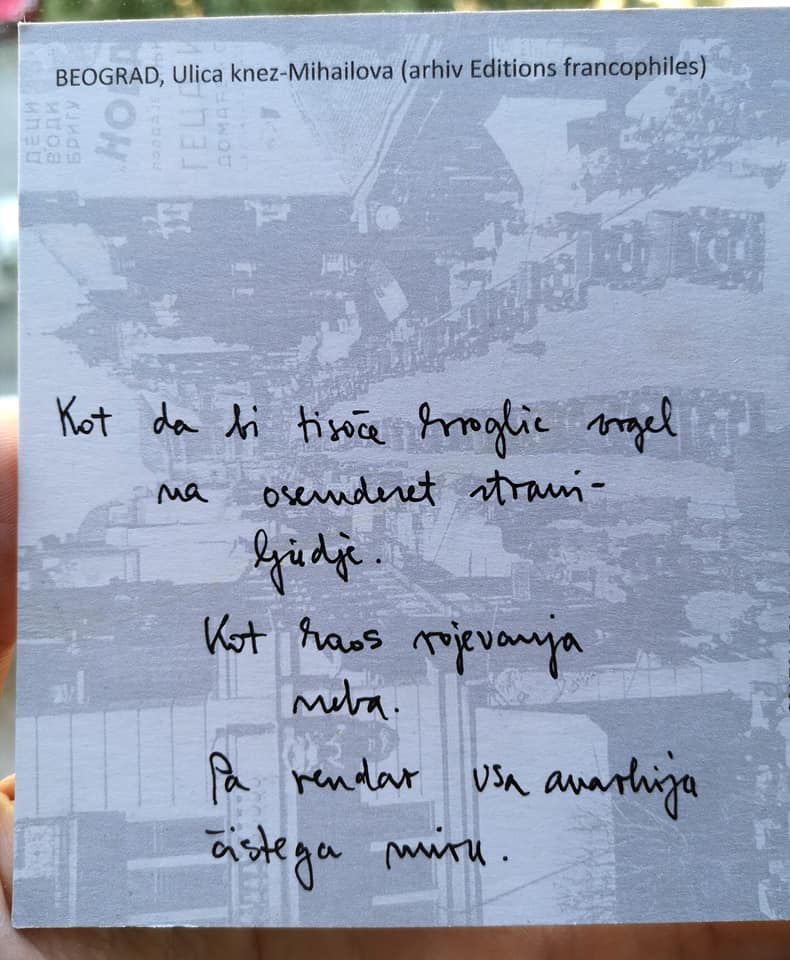 BEOGRAD, Ulica knez-Mihailova (arhiv Editions francophiles)
ДЕЦИ
ВОДИ
БРИГУ
Kot da bi tisoče kroglic vrgel
na osemdeset strani-
ljudje.
Kot kaos rojevanja
neba.
Pa vendar vsa anarhija
čistega miru.